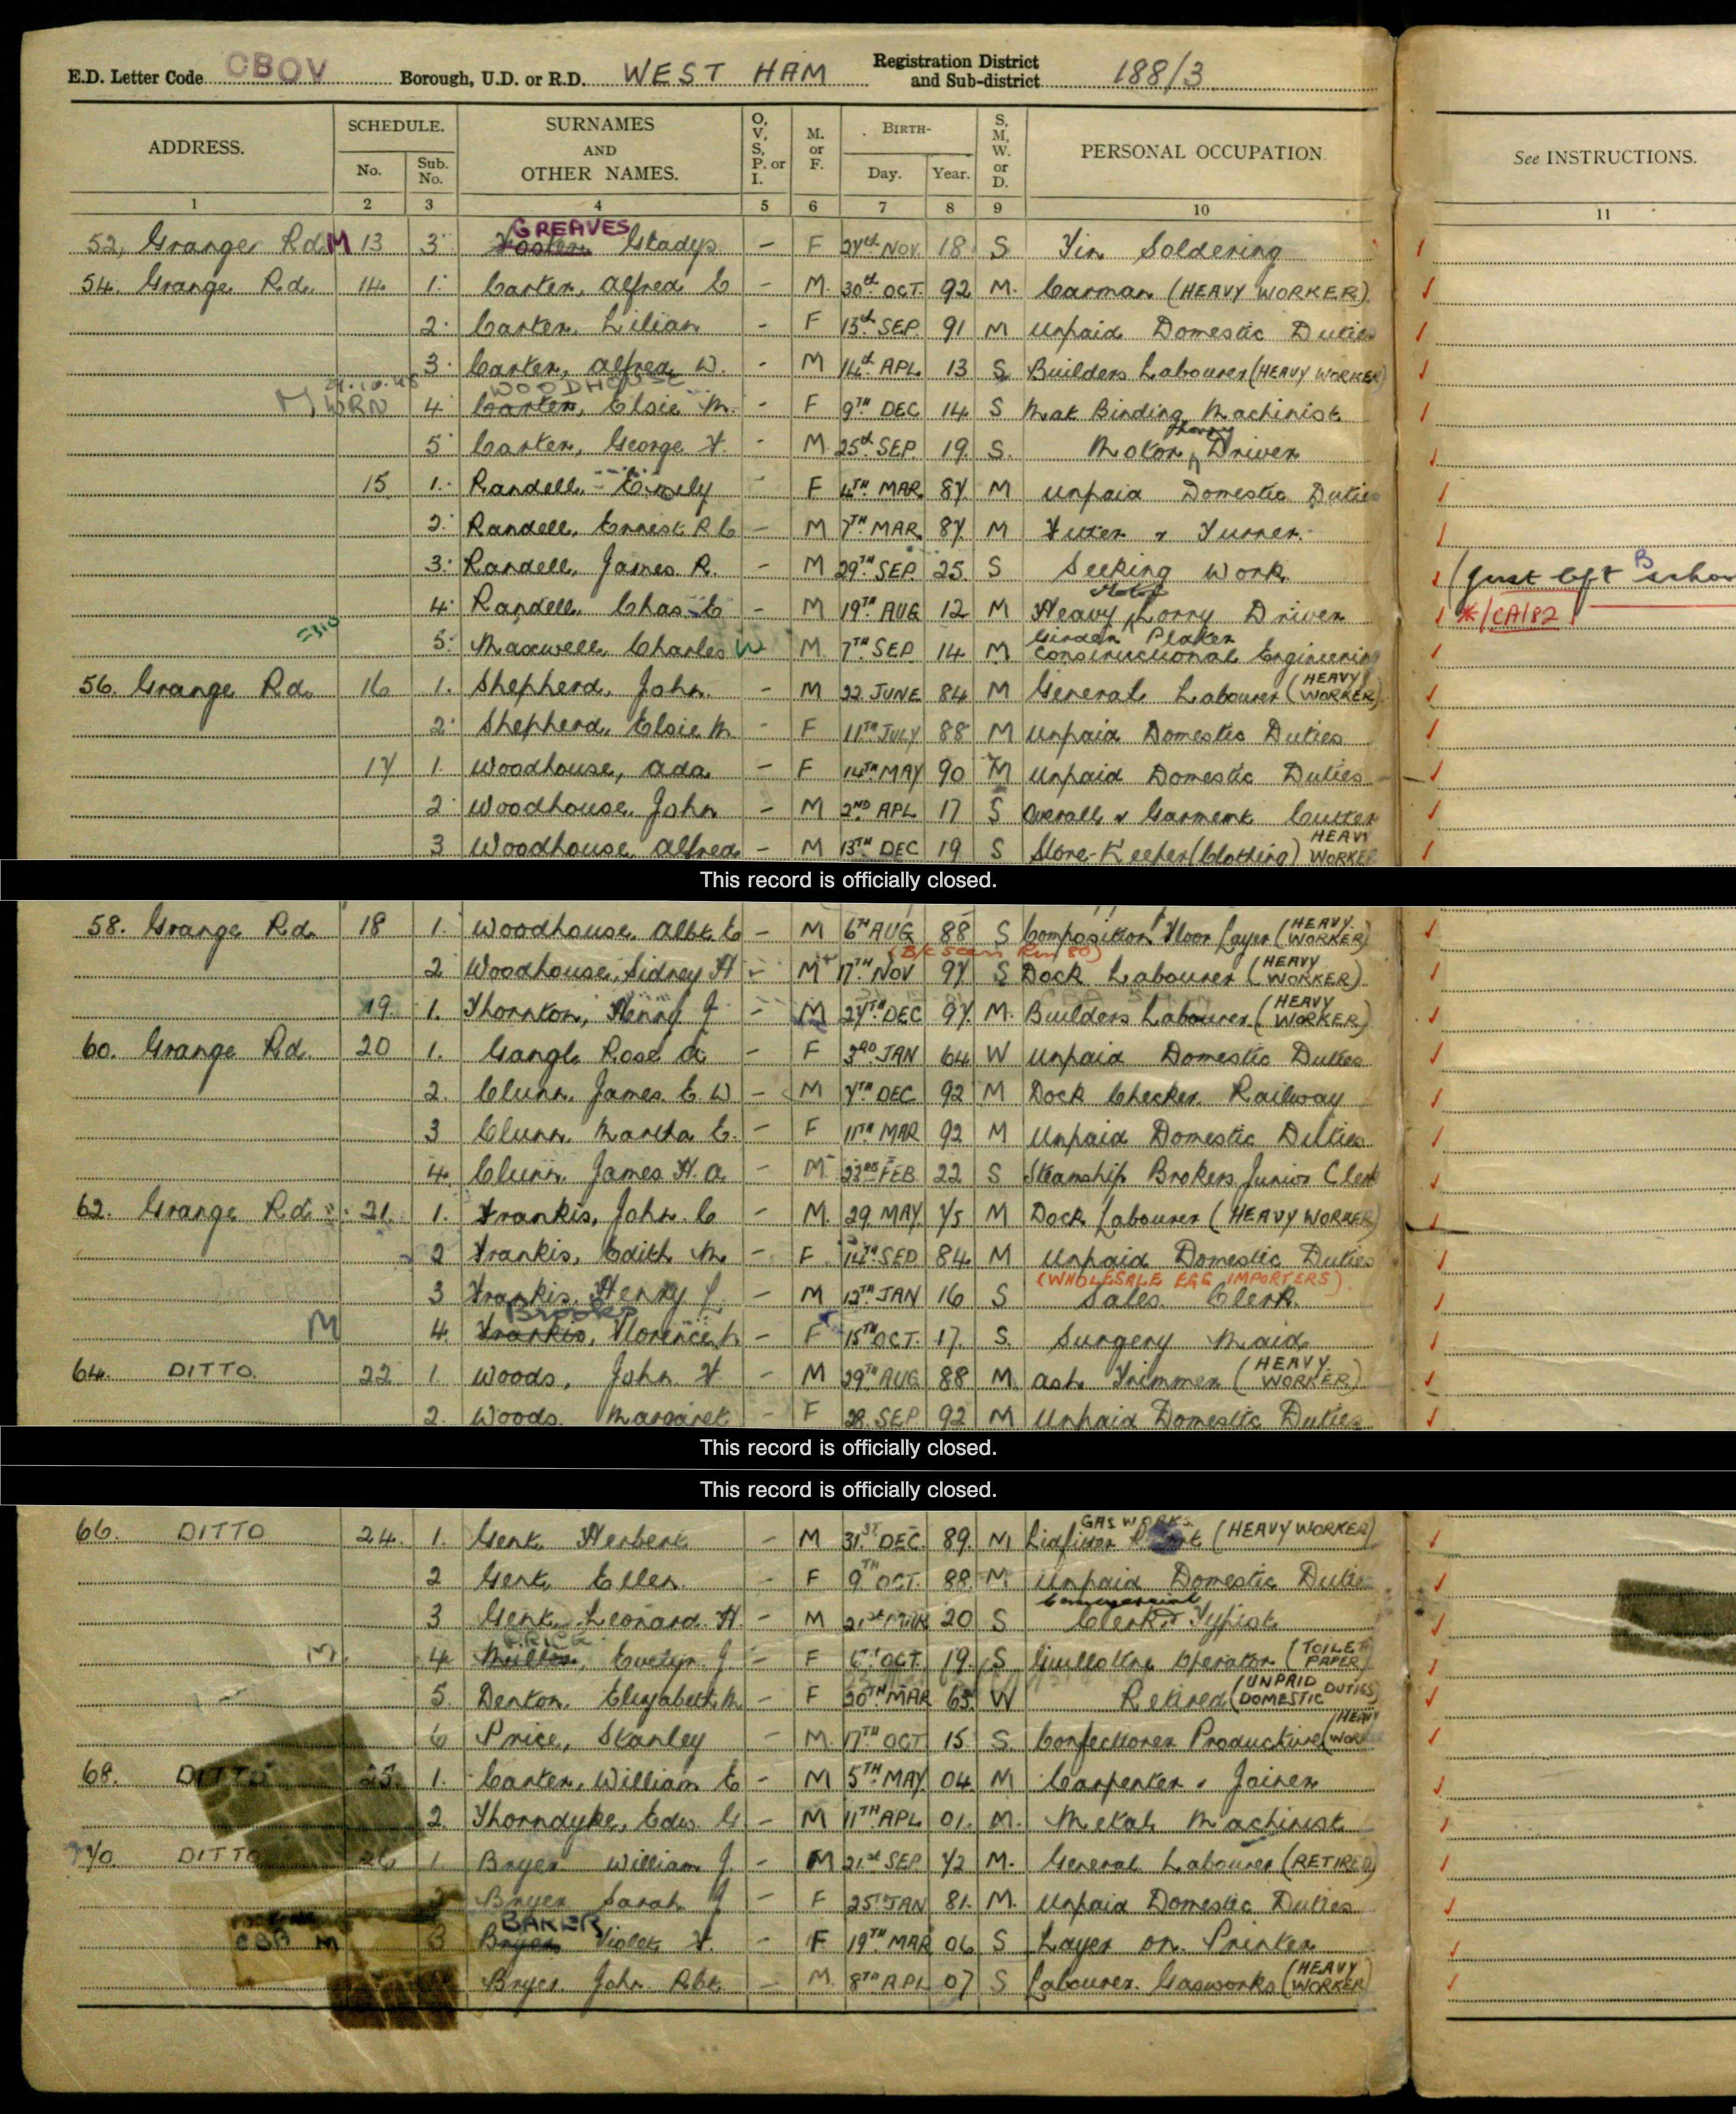 E.D. Letter Code CBOV Borough, U.D. or R.D. WEST HAM Registration District and Sub-district 188/3
ADDRESS. SCHEDULE. No. Sub. No. SURNAMES AND OTHER NAMES. O, V, S, P. or I. M. or F. BIRTH- Day. Year. S, M, W. or D. PERSONAL OCCUPATION. See INSTRUCTIONS.
1 2 3 4 5 6 7 8 9 10 11
GREAVES
52, Grange Rd. M 13 3 Gladys - F 27th NOV. 18 S Tin Soldering
54. Grange Rd. 14 1. Carter, Alfred E - M. 30th OCT. 92 M. Carman (HEAVY WORKER)
2. Carter, Lilian - F 13th SEP. 91 M Unpaid Domestic Duties
3. Carter, Alfred W. - M 14th APL 13 S Builders Labourer (HEAVY WORKER)
WOODHOUSE
M WRN 4 Carter, Elsie M. - F 9TH DEC 14 S Mat Binding Machinist
5 Carter, George F. - M 25th SEP. 19 S. Motor Driver
15 1. Randell, Emily - F 4TH MAR. 87 M Unpaid Domestic Duties
2. Randell, Ernest R C - M 7TH MAR 87 M Fitter & Turner
3. Randell, James R. - M 29TH SEP. 25 S Seeking Work. (just left school
4. Randell, Chas E - M 19TH AUG 12 M Heavy Motor Lorry Driver */CA/82
5. Maxwell Charles W M 7TH SEP 14 M Girder Plater Constructional Engineering
56. Grange Rd. 16 1. Shepherd, John - M 22 JUNE 84 M General Labourer (HEAVY WORKER)
2. Shepherd, Elsie M - F 11TH JULY 88 M Unpaid Domestic Duties
17 1. Woodhouse, Ada - F 14TH MAY 90 M Unpaid Domestic Duties
2. Woodhouse, John - M 2ND APL 17 S Overall & Garment Cutter
3 Woodhouse, Alfred - M 13TH DEC 19 S Store-Keeper (Clothing) HEAVY WORKER
This record is officially closed.
58. Grange Rd. 18 1. Woodhouse, Albt E - M 6TH AUG 88 S Composition Floor Layer (HEAVY WORKER)
2 Woodhouse, Sidney H - M 17TH NOV 97 S Dock Labourer (HEAVY WORKER)
19. 1. Thornton, Henry J. - M 27TH DEC 97. M. Builders Labourer (HEAVY WORKER)
60. Grange Rd. 20 1. Gangl Rose A - F 3RD JAN 64 W Unpaid Domestic Duties
2. Clunn, James E. W - M 7TH DEC 92 M Dock Checker Railway
3 Clunn, Martha E. - F 11TH MAR 92 M Unpaid Domestic Duties
4. Clunn, James H. A. - M 23RD FEB 22 S Steamship Brokers Junior Clerk
62. Grange Rd. 21. 1. Frankis, John C - M. 29 MAY 75 M Dock Labourer (HEAVY WORKER)
2 Frankis, Edith M. - F 14TH SEP 84 M Unpaid Domestic Duties
(WHOLESALE EGG IMPORTERS)
3 Frankis, Henry - M 12TH JAN 16 S Sales Clerk.
Brooks
M 4. Frankis, Florence - F 15TH OCT. 17. S. Surgery Maid
64. DITTO. 22 1. Woods, John F - M 29TH AUG 88 M. Ash Trimmer (HEAVY WORKER)
2. Woods, Margaret - F 28. SEP 92 M Unpaid Domestic Duties
This record is officially closed.
This record is officially closed.
GAS WORKS.
66. DITTO 24. 1. Gent Herbert - M 31ST DEC 89. M (HEAVY WORKER)
2 Gent, Ellen. - F 9TH OCT. 88 M. Unpaid Domestic Duties
Commercial
3 Gent, Leonard. H - M 21st MAR 20 S Clerk & Typist
PRICE
M 4. Evelyn J. - F OCT. 19. S Guillotine Operator (TOILET PAPER)
5. Denton, Elizabeth M - F 20TH MAR 63 W Retired (UNPAID DOMESTIC DUTIES)
6 Price, Stanley - M. 17TH OCT 15. S. Confectioner Productive (HEAVY WORKER
68. DITTO 25. 1. Carter, William E - M 5TH MAY 04 M Carpenter & Joiner
2. Thorndyke, Edw. G - M 11TH APL 01. M. Metal Machinist
70. DITTO 26 1. Bryer William J. - M 21st SEP 72 M. General Labourer (RETIRED)
2 Bryer Sarah J - F 25TH JAN 81. M. Unpaid Domestic Duties
BAKER
CBA M 3 Bryer Violet F. - F 19TH MAR 06 S Layer on Printer
Bryer John Robt. - M. 8TH APL 07 S Labourer Gasworks (HEAVY WORKER)